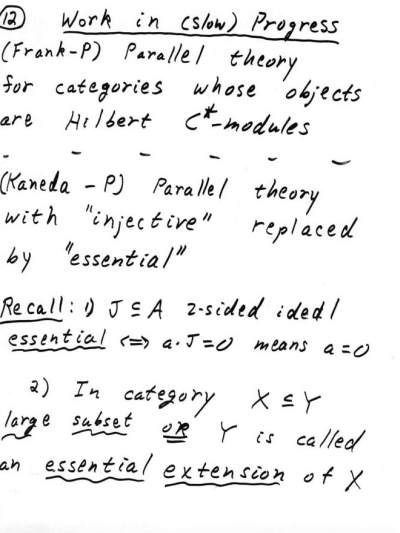 12 Work in (slow) Progress
(Frank-P) Parallel theory
for categories whose objects
are Hilbert C*-modules
- - - - - -
(Kaneda - P) Parallel theory
with "injective" replaced
by "essential"
Recall: 1) J ⊆ A 2-sided ideal
essential <=> a·J=0 means a=0
2) In category X ⊆ Y
large subset OR Y is called
an essential extension of X